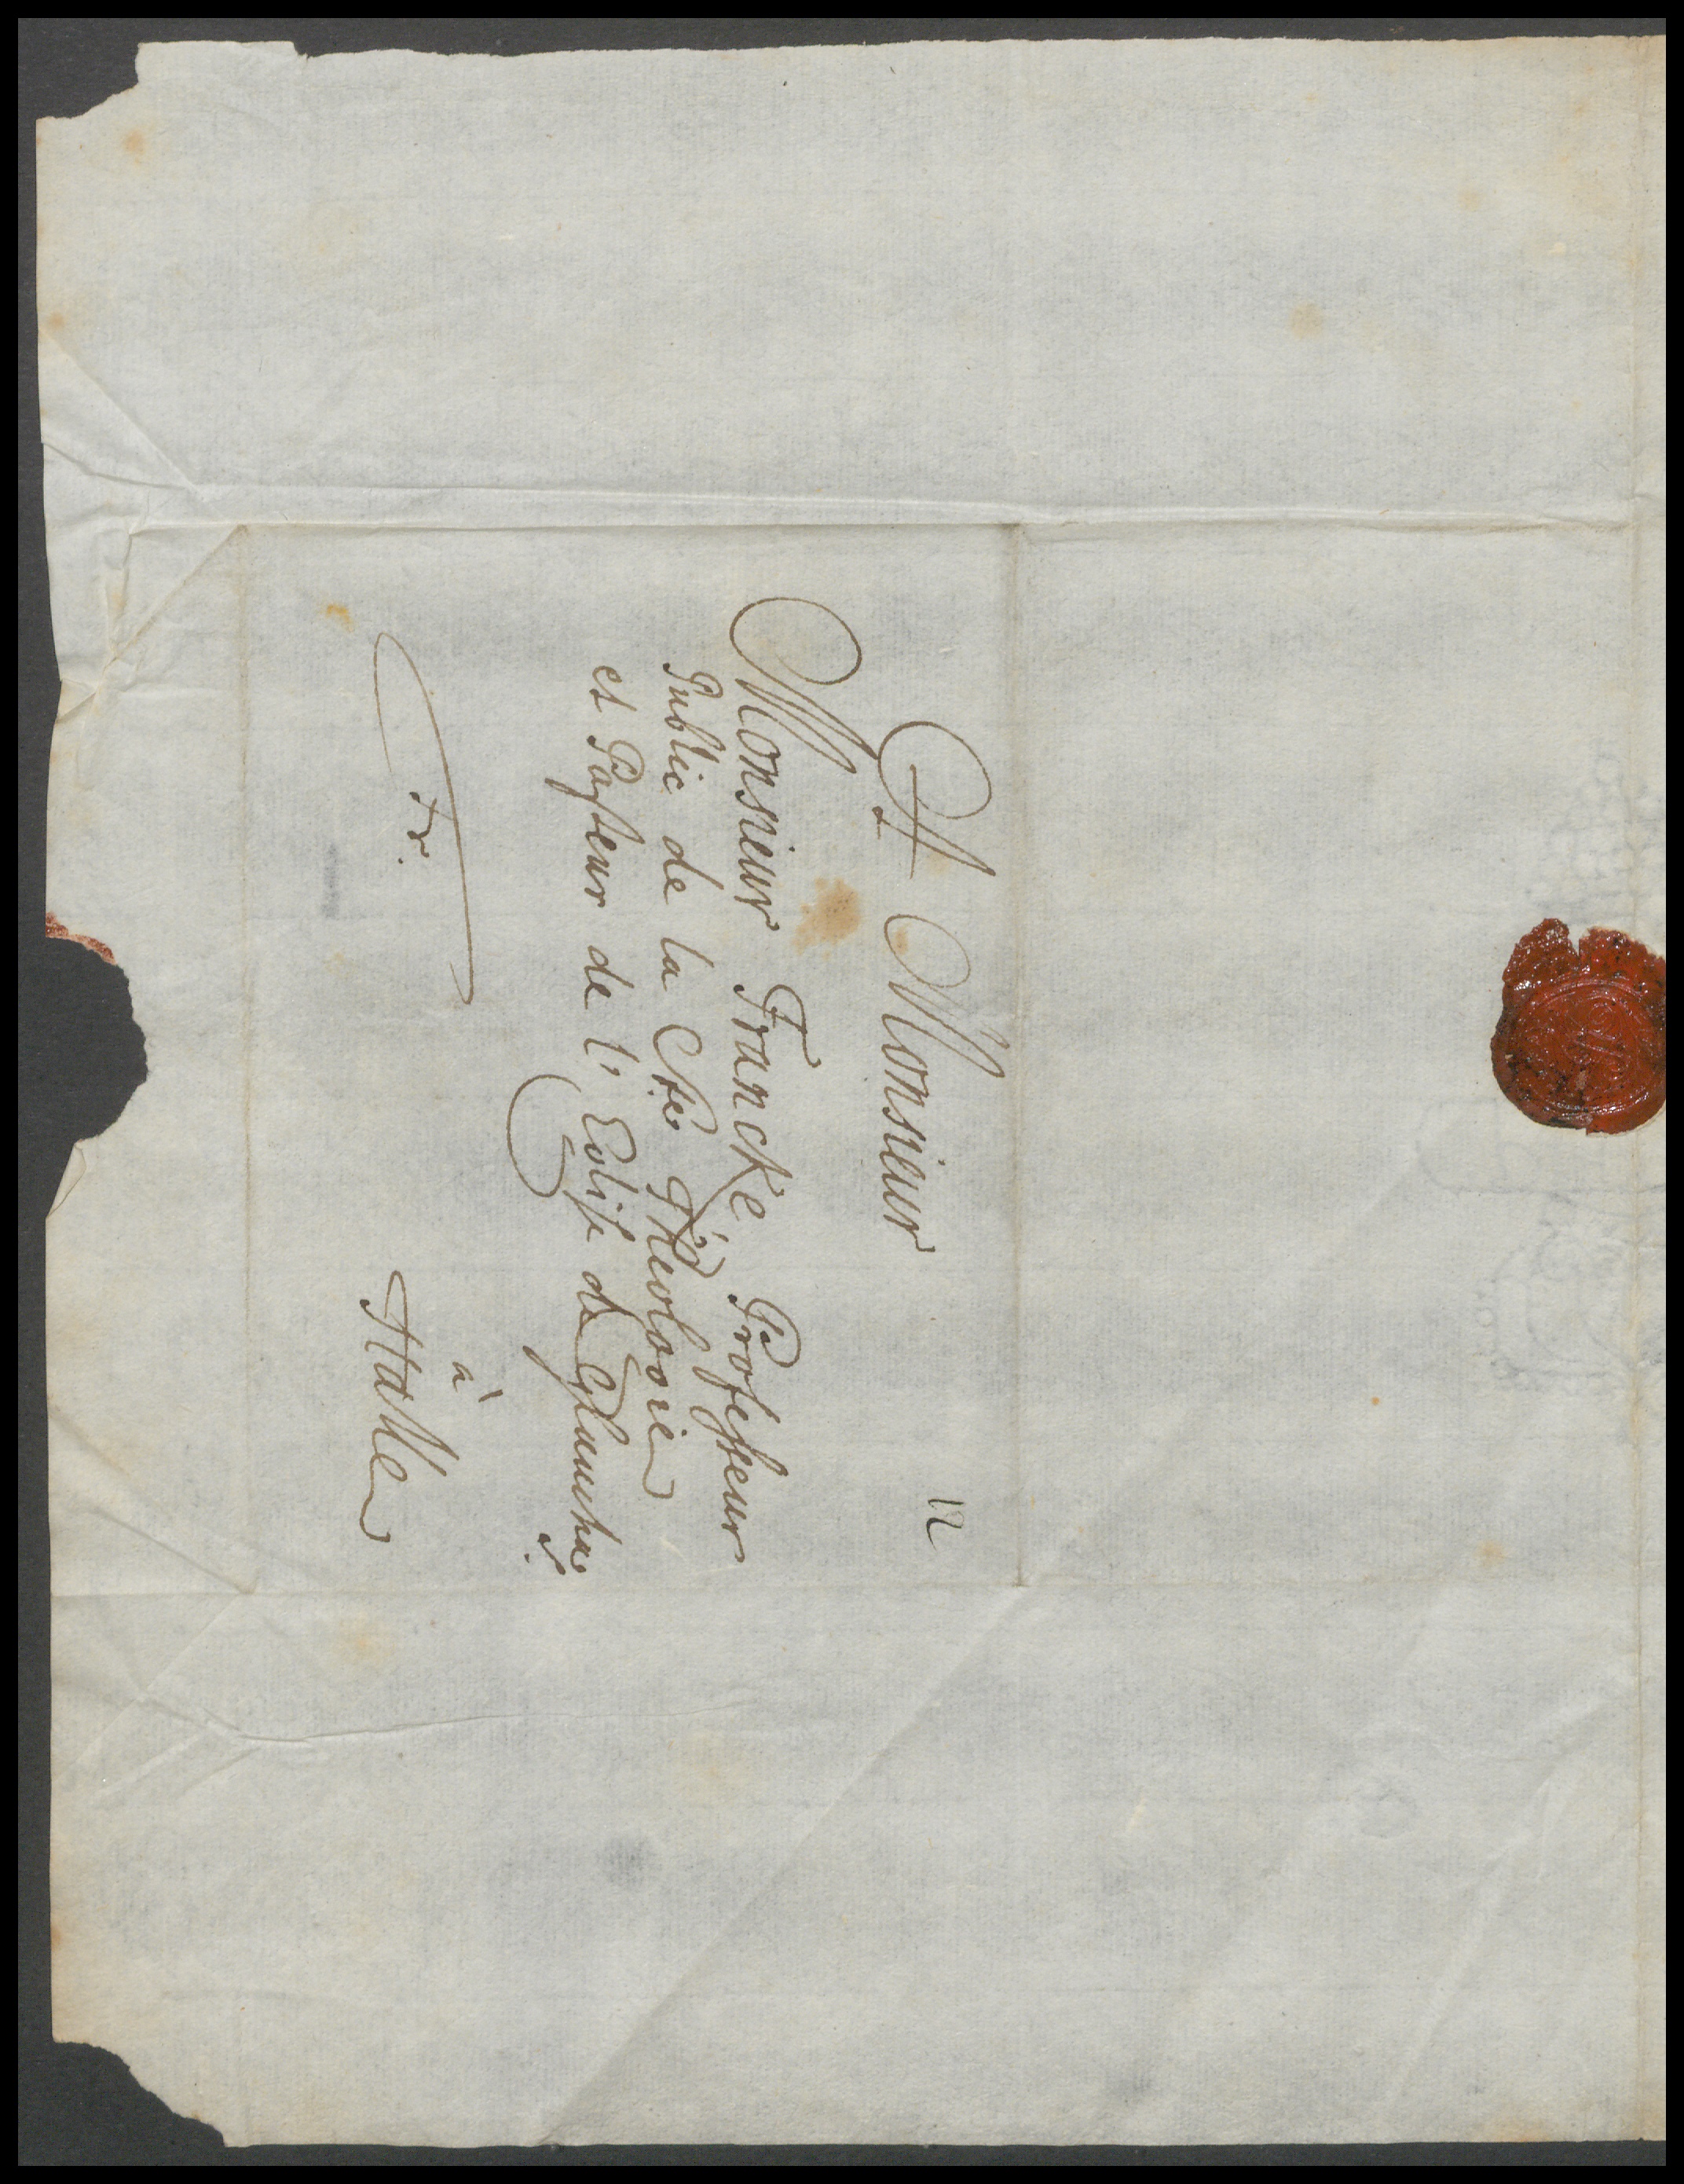 A Monsieur
12
Monsieur Francke Professeur
Public de la Ste Theologie
et Pasteur de l'Eglise de Glaucha
à
fr.
Halle